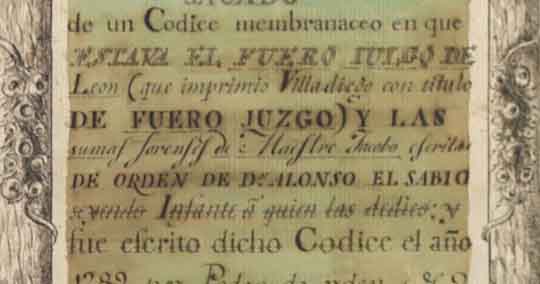 SACADO
de un Codice membranaceo en que
ESTAVA EL FUERO IUIGO DE
Leon (que imprimio Villadiego con titulo
DE FUERO JUZGO) Y LAS
sumas forenses de Maestre Jacobo escritas
DE ORDEN DE Dn. ALONSO EL SABIO
seyendo Infante â quien las dedico, y
fue escrito dicho Codice el año
1289 por Pedro de